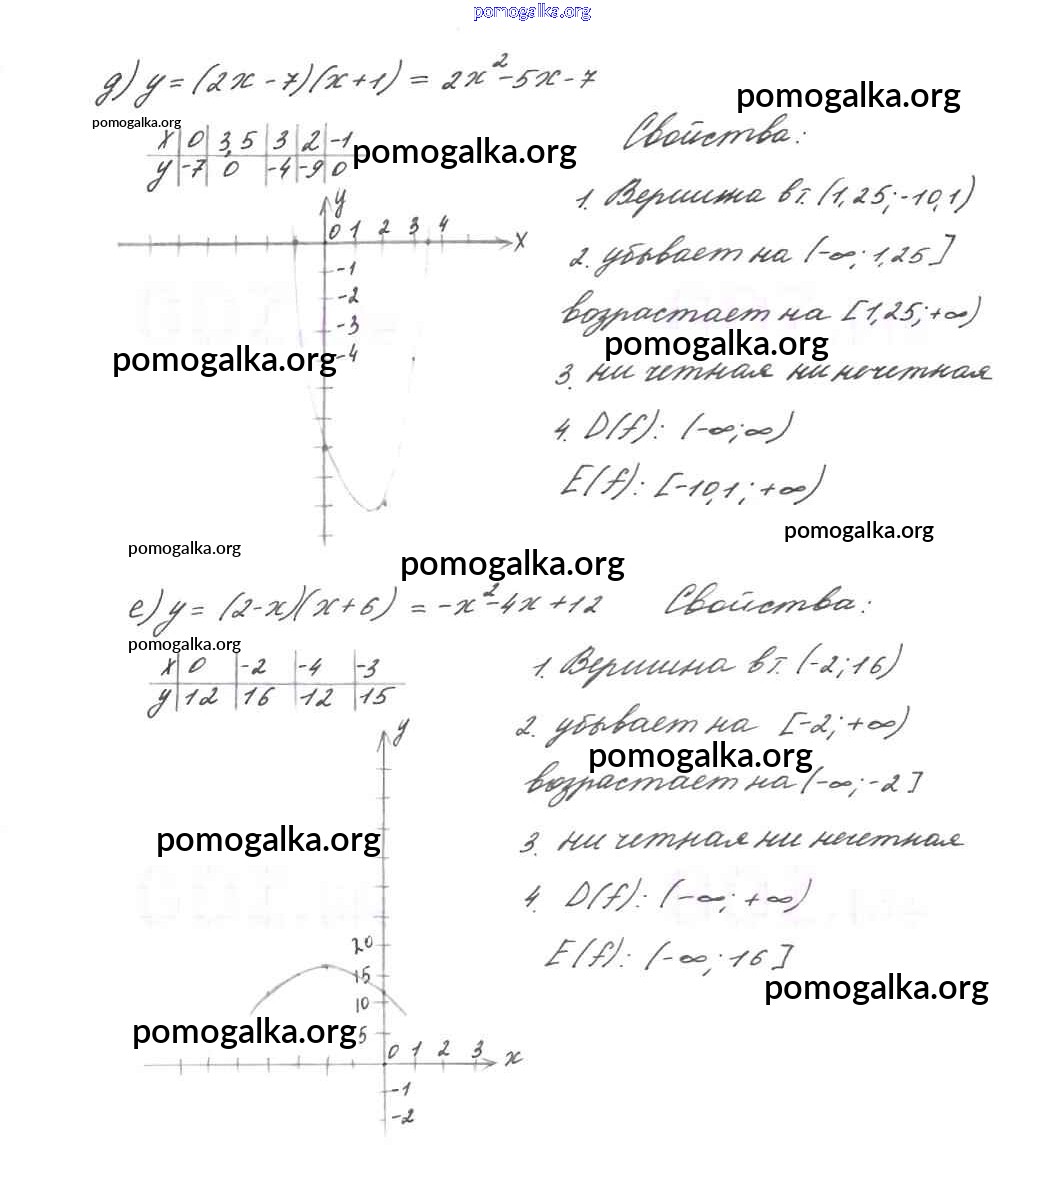 pomogalka.org
д) y = (2x - 7)(x + 1) = 2x² - 5x - 7
pomogalka.org
pomogalka.org
x | 0 | 3,5 | 3 | 2 | -1
y | -7 | 0 | -4 | -9 | 0
pomogalka.org
Свойства:
1. Вершина в т. (1,25; -10,1)
2. убывает на (-∞; 1,25]
возрастает на [1,25; +∞)
pomogalka.org
3. ни четная ни нечетная
4. D(f): (-∞; ∞)
E(f): [-10,1; +∞)
pomogalka.org
y
0 1 2 3 4 x
-1
-2
-3
-4
pomogalka.org
pomogalka.org
pomogalka.org
е) y = (2-x)(x+6) = -x² - 4x + 12
pomogalka.org
x | 0 | -2 | -4 | -3
y | 12 | 16 | 12 | 15
Свойства:
1. Вершина в т. (-2; 16)
2. убывает на [-2; +∞)
pomogalka.org
возрастает на (-∞; -2]
3. ни четная ни нечетная
4. D(f): (-∞; +∞)
E(f): (-∞; 16]
pomogalka.org
y
pomogalka.org
20
15
10
5
pomogalka.org
0 1 2 3 x
-1
-2